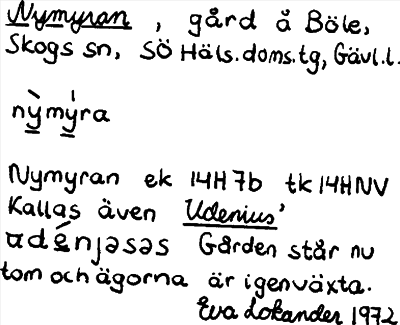 Nymyran, gård å Böle,
Skogs sn, SÖ Häls.doms.tg, Gävl.l.
nỳmýra
Nymyran ek 14H7b tk 14HNV
Kallas även Udenius'
ɯdénjəsəs Gården står nu
tom och ägorna är igenväxta.
Eva Lokander 1972